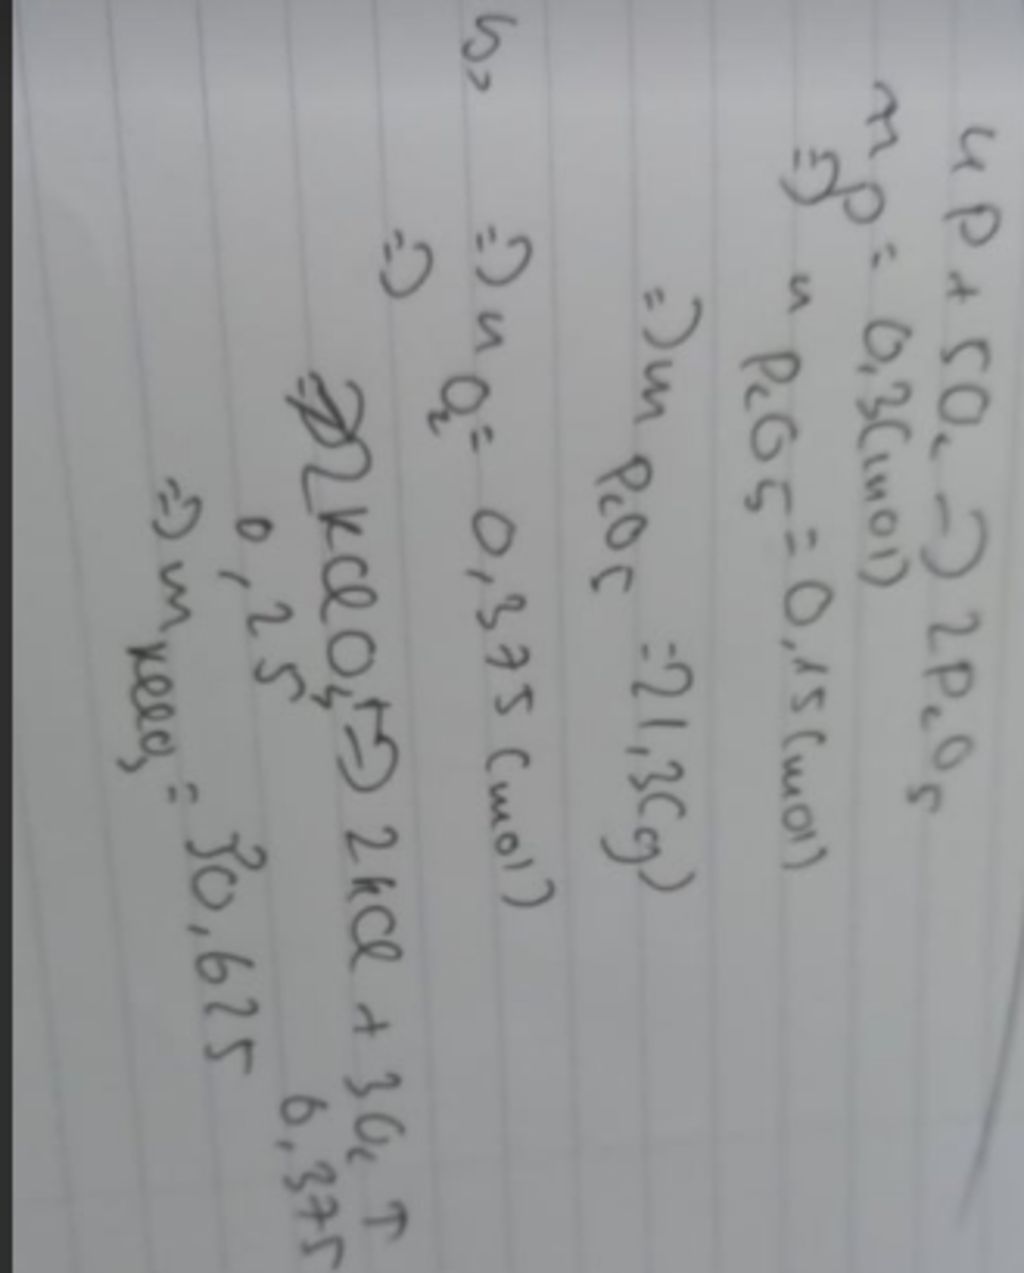 4P + 5O₂ => 2P₂O₅
nP = 0,3(mol)
=> n P₂O₅ = 0,15(mol)
=> m P₂O₅ = 21,3(g)
b, => n O₂ = 0,375(mol)
=>
2KClO₃ => 2KCl + 3O₂ ↑
0,25 0,375
=> m KClO₃ = 30,625